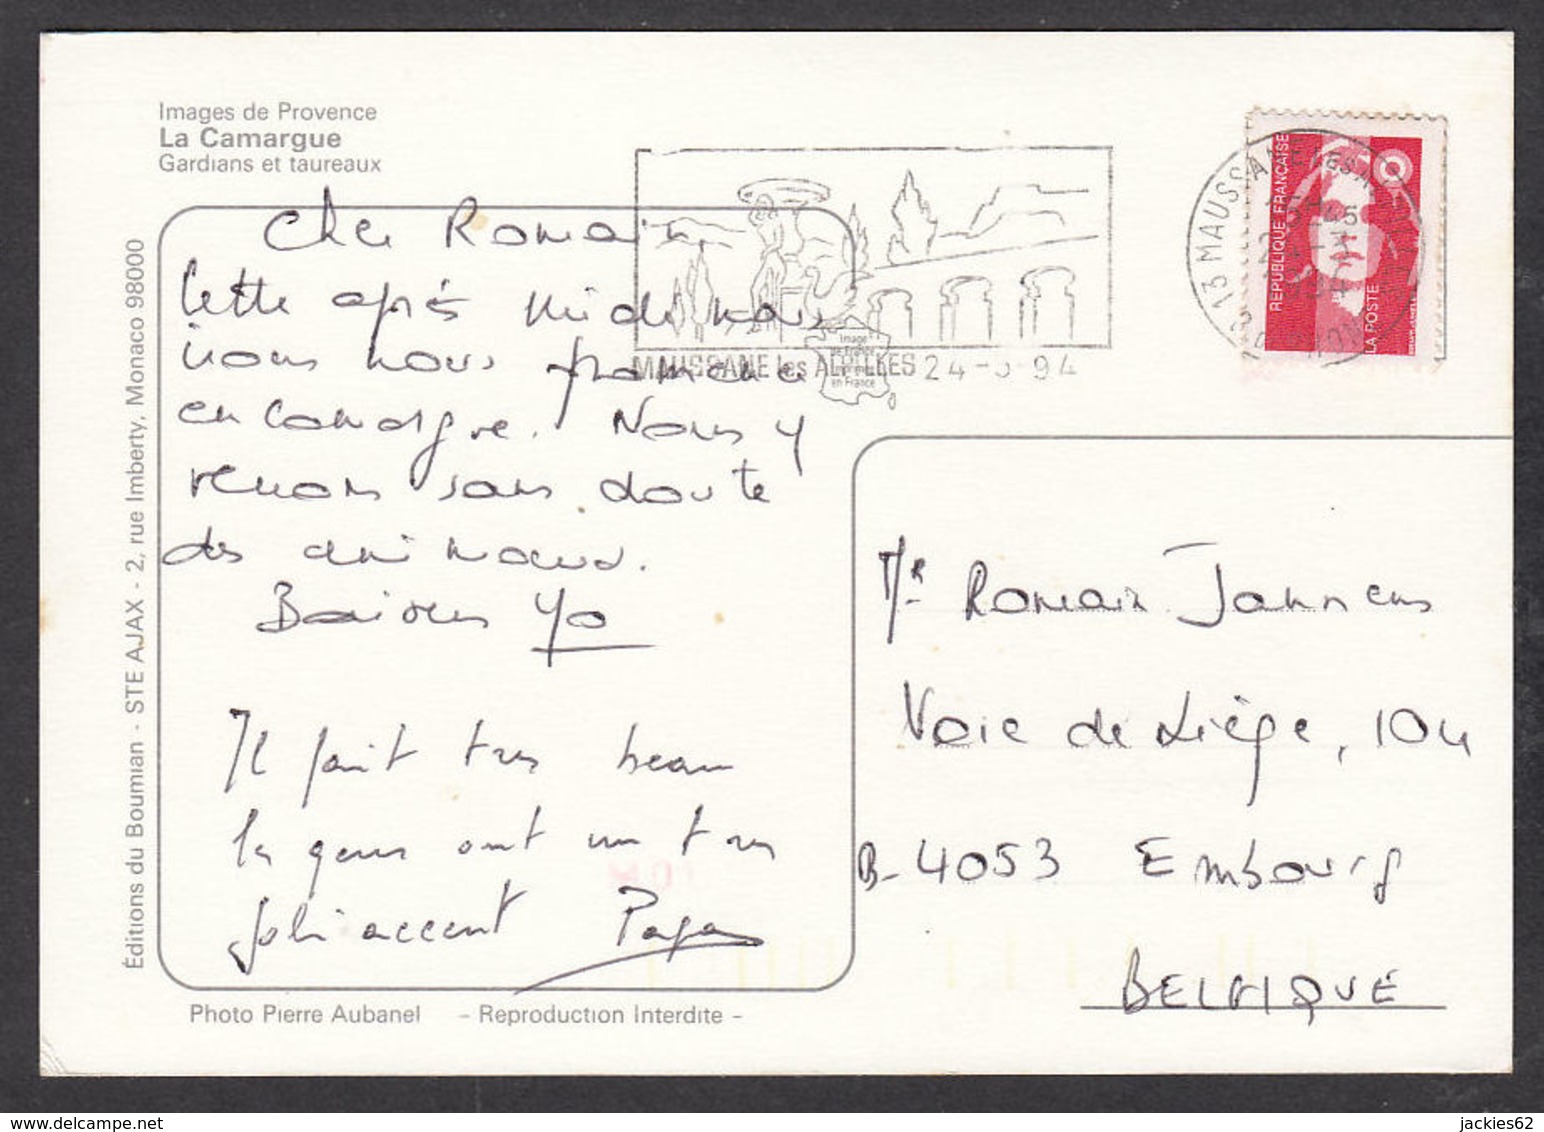 Images de Provence
La Camargue
Gardians et taureaux
Cher Romain,
Cette après midi nous
irons nous promener
en Camargue. Nous y
verrons sans doute
des animaux.
Baisers Yo
Il fait tres beau
les gens ont un tres
joli accent Papa
Photo Pierre Aubanel - Reproduction Interdite -
Éditions du Boumian - STE AJAX - 2, rue Imberty, Monaco 98000
MAUSSANE les ALPILLES 24-5-94
Image
de France
en France
13 MAUSSANE LES A
REPUBLIQUE FRANÇAISE
LA POSTE
Mr Romain Janssens
Voie de Liège, 104
B-4053 Embourg
BELGIQUE
jackies62